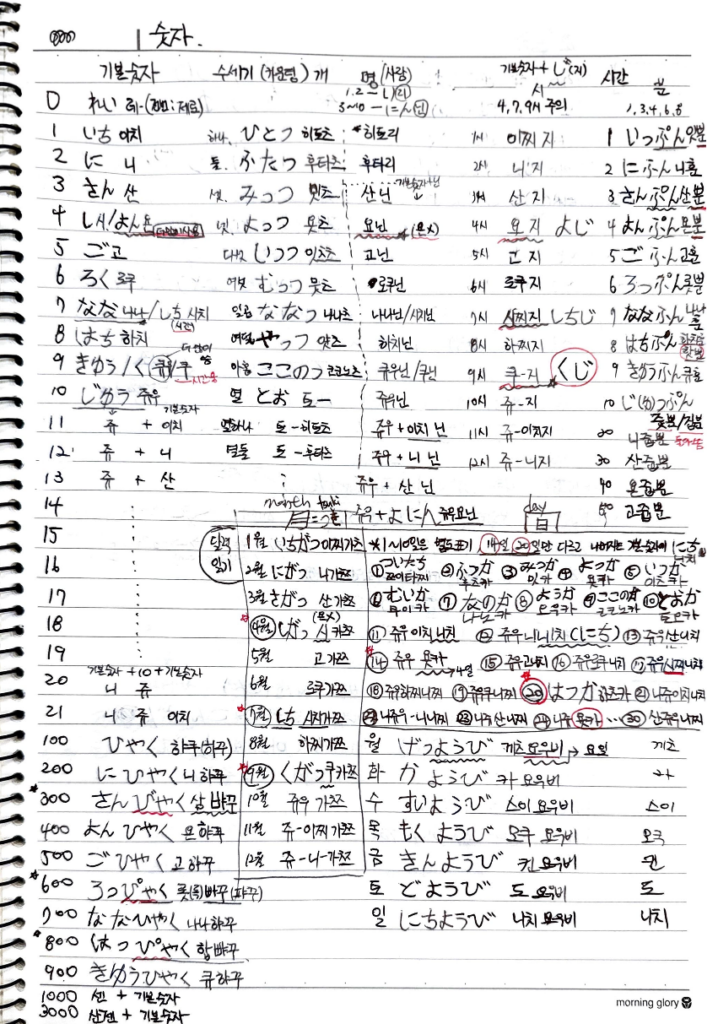 숫자.
기본숫자 수세기 (가운뎅) 개 명 (사람) 기본숫자 + じ (지) 시간 분
1.2 - し(리) 시
3~10 - にん(닌) 4,7,9시 주의 1,3,4,6,8
0 れい 레-(제로)
1 いち 이치 하나 ひとつ 히토츠 히토리 1시 이찌지 1 いっぷん 잇뿐
2 に 니 둘 ふたつ 후타츠 후타리 2시 니지 2 にふん 니훈
3 さん 산 셋 みっつ 밋츠 산닌 기본숫자+닌 3시 산지 3 さんぷん 산뿐
4 し/よん 욘 넷 よっつ 욧츠 요닌 (욘X) 4시 요지 よじ 4 よんぷん 욘뿐
5 ご 고 다섯 いつつ 이츠츠 고닌 5시 고지 5 ごふん 고훈
6 ろく 로쿠 여섯 むっつ 뭇츠 로쿠닌 6시 로쿠지 6 ろっぷん 롯뿐
7 なな 나나/しち 시치 일곱 ななつ 나나츠 나나닌/시치닌 7시 시찌지 しちじ 7 ななふん 나나훈
8 はち 하치 여덟 やっつ 얏츠 하치닌 8시 하찌지 8 はちぷん
9 きゅう/く 큐/쿠 아홉 ここのつ 코코노츠 큐우닌/쿠닌 9시 쿠-지 くじ 9 きゅうふん 큐훈
10 じゅう 쥬우 열 とお 토- 쥬우닌 10시 쥬-지 10 じ(ゅ)っぷん
기본숫자 쥿뿐/집뿐
11 쥬 + 이치 열하나 토-히토츠 쥬우+이치닌 11시 쥬-이찌지 20 니쥽뿐
12 쥬 + 니 열둘 토-후타츠 쥬우+니닌 12시 쥬-니지 30 산쥽뿐
13 쥬 + 산 쥬우+산닌 40 욘쥽뿐
14 month 月=つき 쥬우+よにん 쥬우요닌 day 日 50 고쥽뿐
15 달력 읽기 1월 いちがつ 이찌가쯔 *1~10일은 별도표기 14일 20일만 다르고 나머지는 기본숫자에 にち 니치
16 2월 にがつ 니가쯔 ① ついたち 쯔이타찌 ② ふつか 후츠카 ③ みっか 밋카 ④ よっか 욧카 ⑤ いつか 이츠카
17 3월 さがつ 산가쯔 ⑥ むいか 무이카 ⑦ なのか 나노카 ⑧ ようか 요우카 ⑨ ここのか 코코노카 ⑩ とおか 토오카
18 4월 しがつ 시가쯔 (욘X) ⑪ 쥬우이치니치 ⑫ 쥬우니니치(にち) ⑬ 쥬우산니치
19 5월 고가쯔 ⑭ 쥬우욧카 ⑮ 쥬우고니치 ⑯ 쥬우로쿠니치 ⑰ 쥬우시찌니치
기본숫자+10+기본숫자
20 니 쥬 6월 로쿠가쯔 ⑱ 쥬우하찌니찌 ⑲ 쥬우쿠니찌 ⑳ はつか 하츠카 ㉑ 니쥬이치니치
21 니 쥬 이치 7월 しち 시치가쯔 ㉒ 니쥬우-니니치 ㉓ 니쥬산니치 ㉔ 니쥬욧카 … ㉚ 산쥬우니치
100 ひやく 햐쿠(하쿠) 8월 하찌가쯔 월 げつようび 게츠요우비 → 요일 게츠
200 にひやく 니햐쿠 9월 くがつ 쿠가쯔 화 かようび 카 요우비 카
300 さんびやく 살뱌꾸 10월 쥬우가쯔 수 すいようび 스이 요우비 스이
400 よんひやく 욘햐꾸 11월 쥬-이찌가쯔 목 もくようび 모쿠 요우비 모쿠
500 ごひやく 고햐꾸 12월 쥬-니-가쯔 금 きんようび 킨 요우비 킨
600 ろっぴやく 롯뺘꾸 토 どようび 도 요우비 도
700 ななひやく 나나햐꾸 일 にちようび 니치 요우비 니치
800 はっぴやく 핫뺘꾸
900 きゅうひやく 큐햐꾸
1000 센 + 기본숫자
3000 산젠 + 기본숫자
morning glory